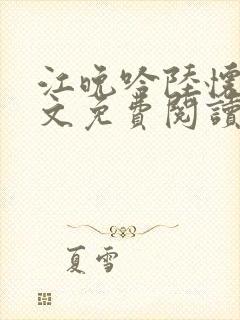 江晚吟陸懷
文免費閱讀
夏雪